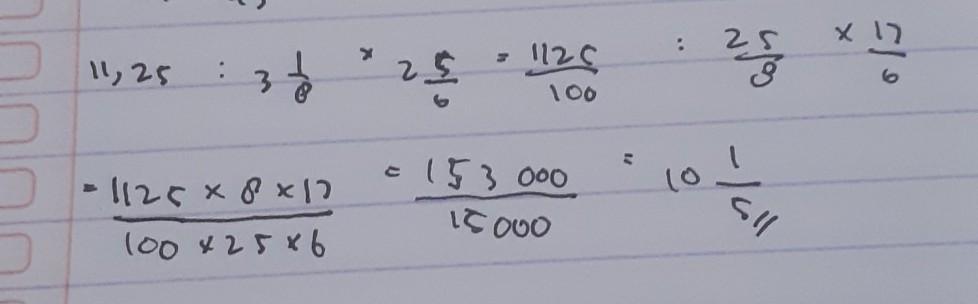 11,25 : 3 1/8 × 2 5/6 = 1125/100 : 25/8 × 17/6
= 1125 × 8 × 17 / 100 × 25 × 6 = 153 000 / 15000 = 10 1/5 //